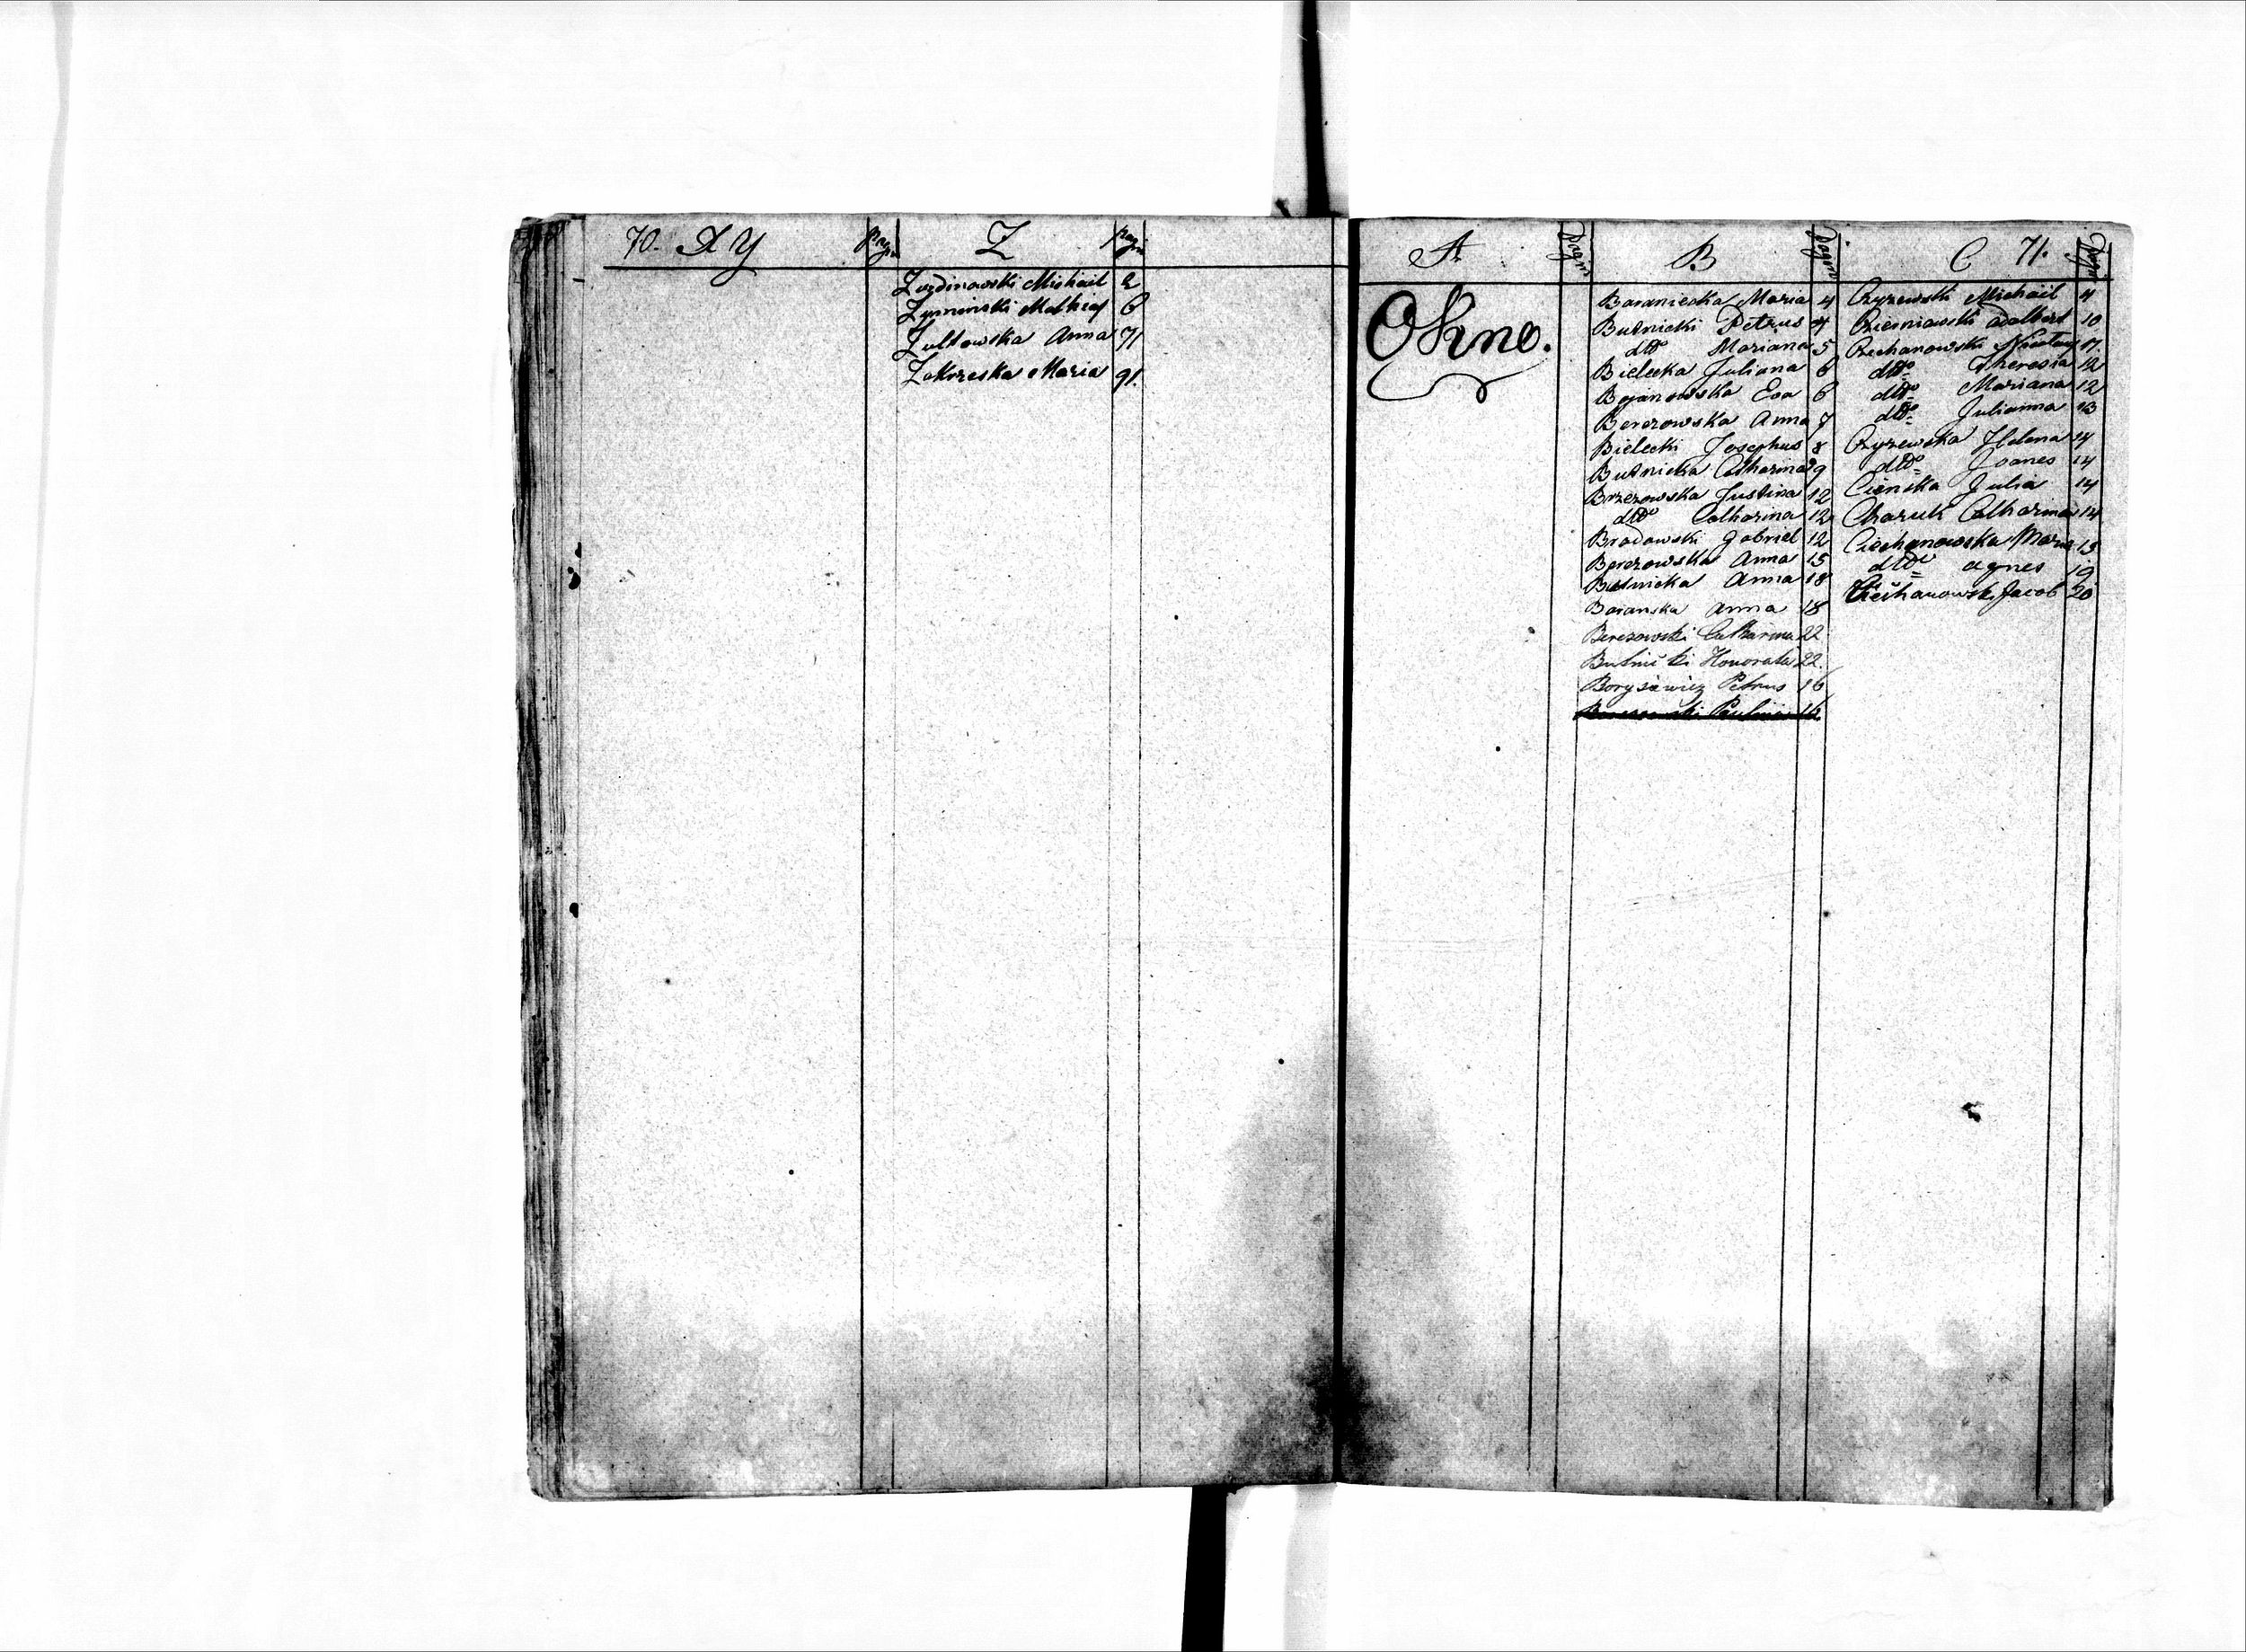 70. X Y pagin Z pagin
Zozdinowski Michail 2
Zyminski Mathias 6
Zultowska Anna 71
Zakrzeska Maria 91.
A pagin B pagin C 71. pagin
Okno.
Baraniecka Maria 4
Butnicki Petrus 4
dtto Mariana 5
Bielecka Juliana 6
Bojanowska Eva 6
Berezowska Anna 7
Bielecki Josephus 8
Butnicka Catharina 9
Brzezowska Justina 12
dtto Catharina 12
Brodowski Gabriel 12
Berezowska Anna 15
Butnicka Anna 18
Baranska Anna 18
Berezowski Catharina 22
Butnicki Honorata 22.
Borysiewicz Petrus 16
Paulina 16
Czyzewski Michail 4
Adalbert 10
Czechanowski 17
dtto Theresia 12
dtto Mariana 12
dtto Julianna 13
Czyzewska Helena 14
dtto Joanes 14
Cienska Julia 14
Charuk Catharina 14
Ciechanowska Maria 15
dtto Agnes 19
Ciechanowski Jacob 20